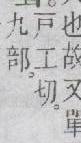 也故又單
戸工切。
九部。